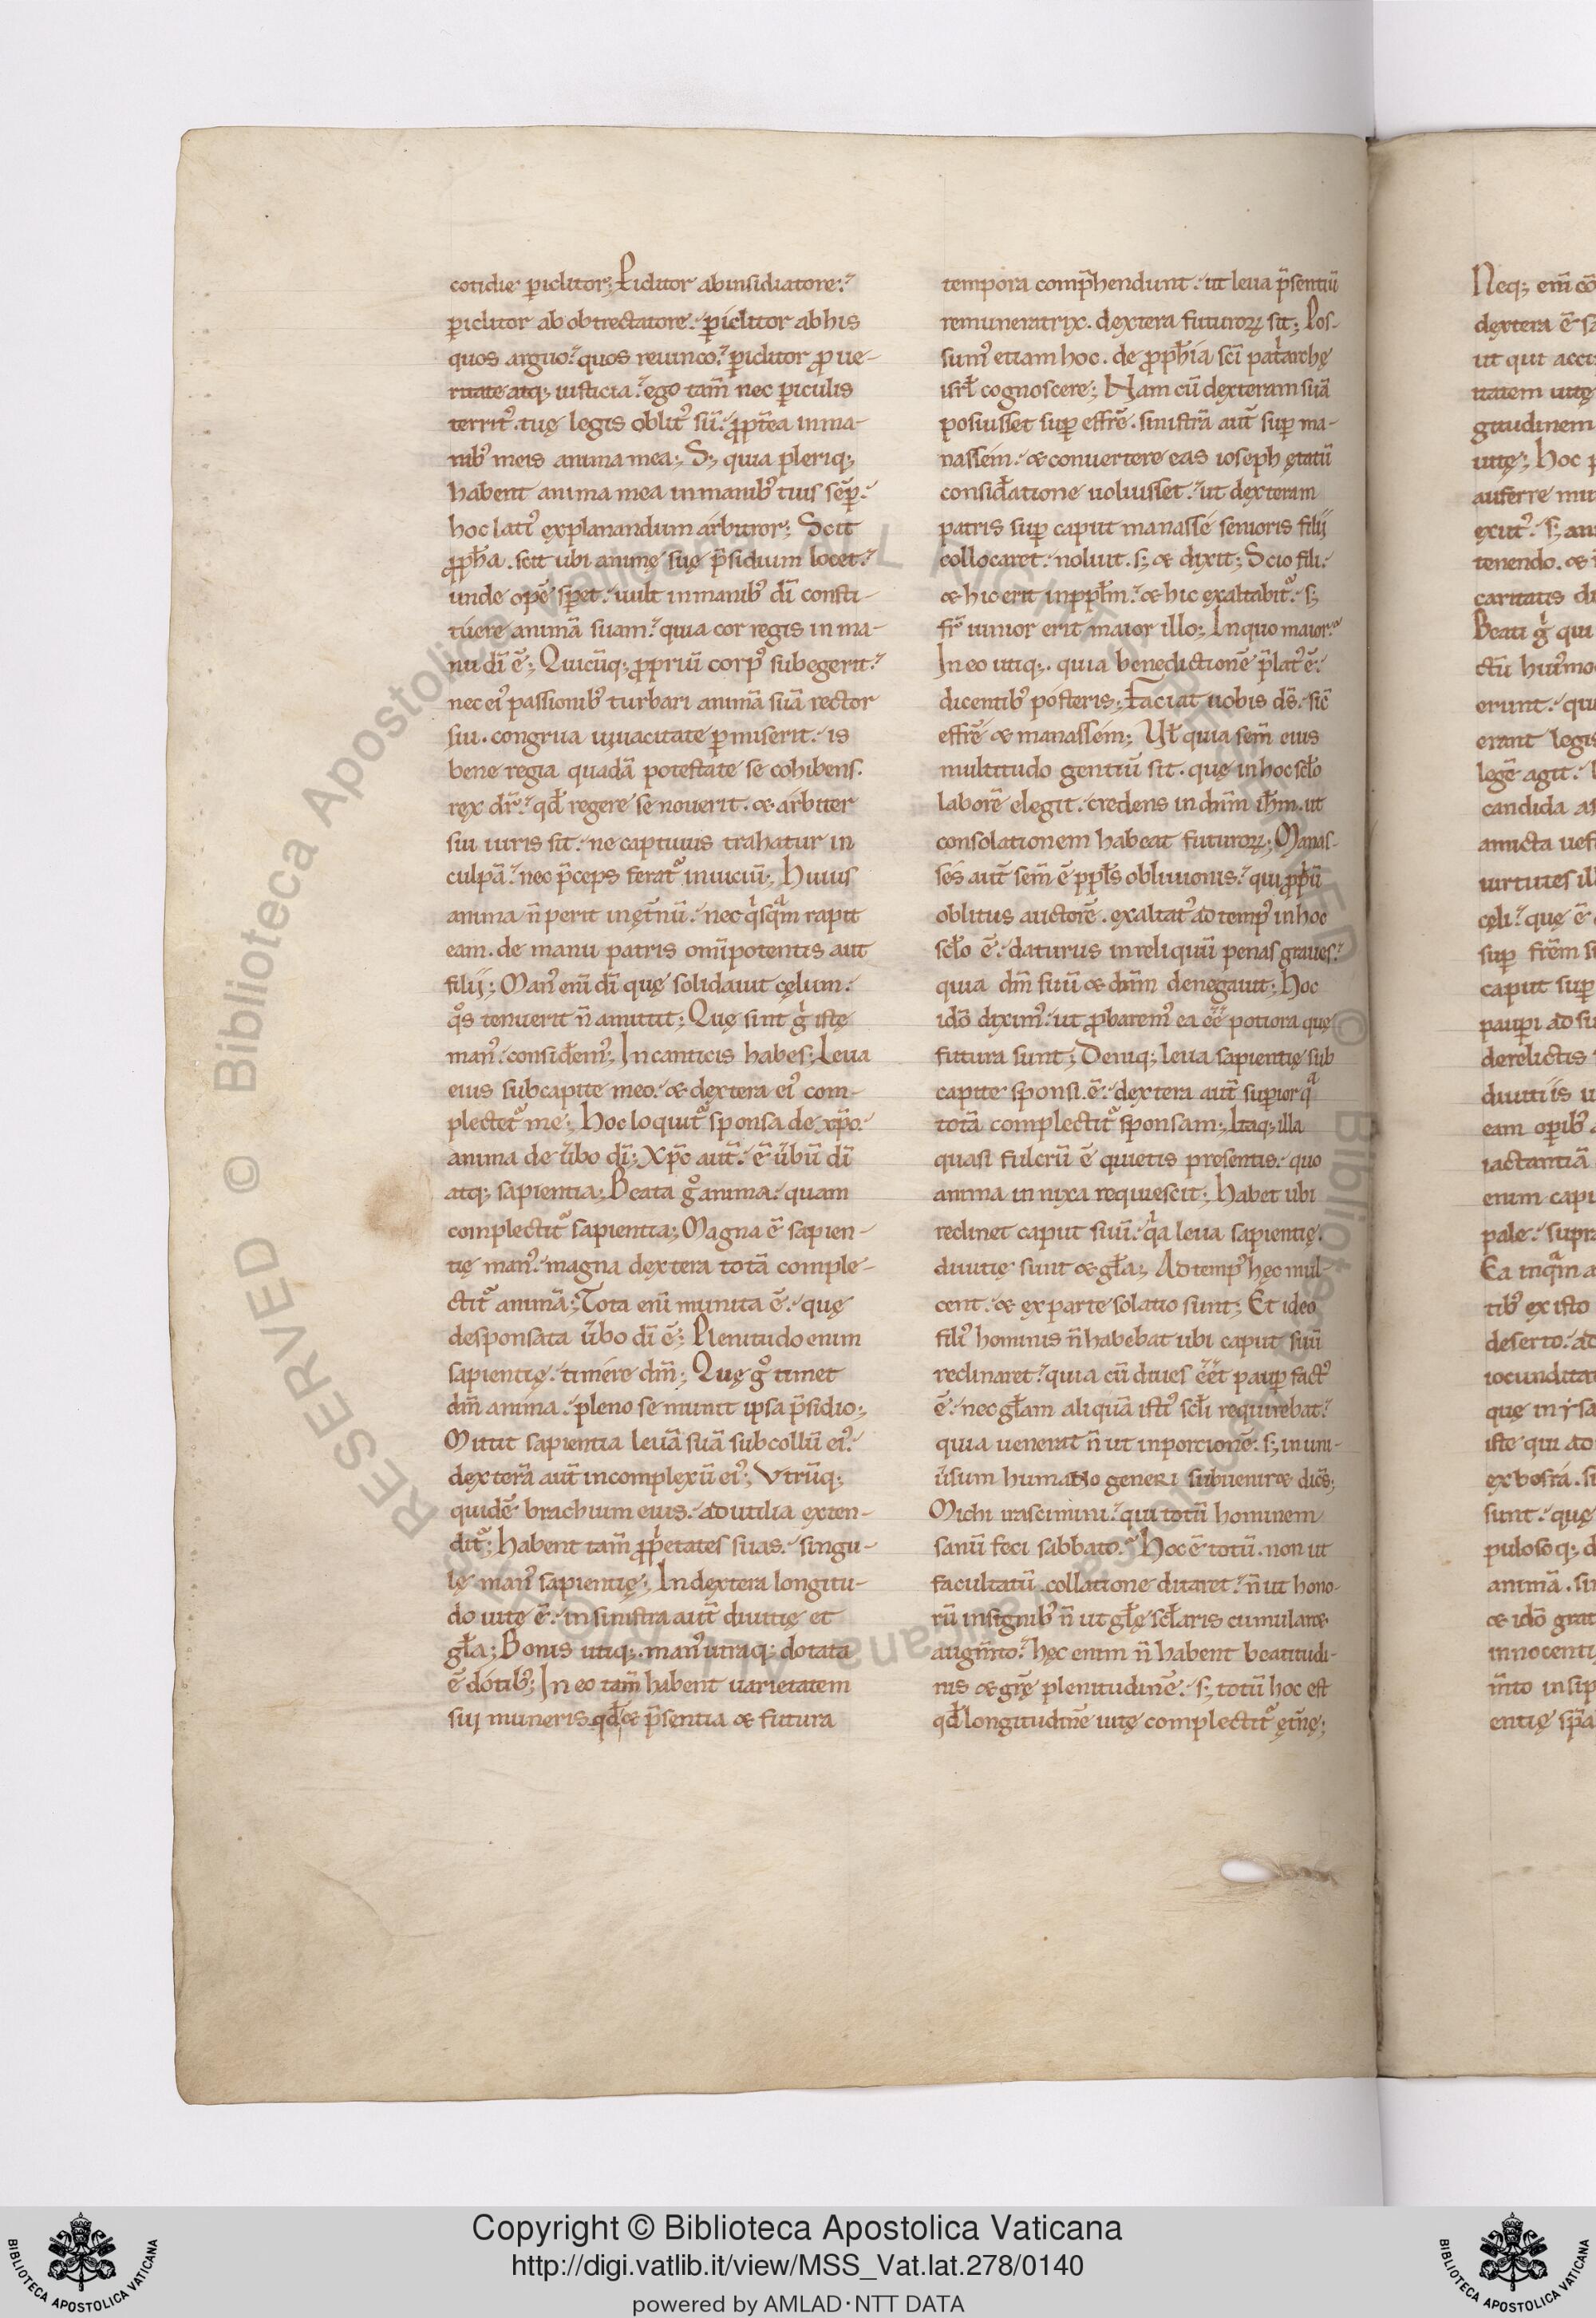 cotidie ꝑiclitor; Ꝑiclitor ab insidiatore:
ꝑiclitor ab obtrectatore. ꝑiclitor ab his
quos arguo. quos reuinco. ꝑiclitor ꝓ ue-
ritate atq; iusticia. ego tam̄ nec ꝑiculis
territꝰ. tuę legis oblitꝰ sū. ꝓpt̄ea in ma-
nibꝰ meis anima mea; S; quia pleriq;
habent anima mea in manibꝰ tuis sēꝑ.
hoc latiꝰ explanandum arbitror; Scit
ꝓph̄a. scit ubi animę suę p̄sidium locet.
unde opē speret. uult in manibꝰ dī consti-
tuere animā suam. quia cor regis in ma-
nu dī ē; Quicūq; ꝓpriū corpꝰ subegerit.
nec eiꝰ passionibꝰ turbari animā suā rector
sui. congrua uiuacitate ꝑmiserit. is
bene regia quadā potestate se cohibens.
rex dr̄. qđ regere se nouerit. & arbiter
sui iuris sit. ne captiuus trahatur in
culpā. nec p̄ceps ferat᷑ in uiciū; Huius
anima n̄ perit in ęt̄nū. nec qͥsqᷓm rapit
eam. de manu patris omīpotentis aut
filii; Manꝰ enī dī quę solidauit cęlum.
qͦs tenuerit n̄ amittit; Quę sint gͥ istę
manꝰ. consideremꝰ; In canticis habes; Leua
eius sub capite meo. & dextera eiꝰ com-
plectet᷑ me; Hoc loquit᷑ sponsa de xp̄o.
anima de ūbo dī; Xp̄c aut̄. ē ūbū dī
atq; sapientia; Beata gͦ anima. quam
complectit᷑ sapientia; Magna ē sapien-
tię manꝰ. magna dextera totā comple-
ctit᷑ animā; Tota enī munita ē. quę
desponsata ūbo dī ē; Plenitudo enim
sapientię. timere dm̄; Quę gͦ timet
dm̄ anima. pleno se munit ipsa p̄sidio;
Mittit sapientia leuā suā sub collū eiꝰ.
dexterā aut̄ in complexū eiꝰ; Vtrūq;
quidē brachium eius. ad utilia exten-
dit᷑; Habent tam̄ ꝓpͥetates suas. singu-
lę manꝰ sapientię; In dextera longitu-
do uitę ē. in sinistra aut̄ diuitię et
gła; Bonis utiq;. manꝰ utraq; dotata
ē dotibꝰ; In eo tam̄ habent uarietatem
sui muneris. qđ & p̄sentia & futura
tempora comp̄hendunt. ut leua p̄sentiū
remuneratrix. dextera futuroꝝ sit; Pos-
sumꝰ etiam hoc. de ꝓph̄ia sc̄i patͥarchę
isrł cognoscere; Nam cū dexteram suā
posuisset suꝑ effrē. sinistrā aut̄ suꝑ ma-
nassem. & conuertere eas ioseph ętatū
consid̄atione uoluisset. ut dexteram
patris suꝑ caput manasse senioris filii
collocaret. noluit. s; & dixit; Scio fili.
& hic erit in ppłm. & hic exaltabit᷑. s;
fr̄ iunior erit maior illo; In quo maior.
In eo utiq;. quia benedictionē p̄latꝰ ē.
dicentibꝰ posteris; Faciat uobis ds̄. sic̄
effrē & manassem; Uł quia sem̄ eius
multitudo gentiū sit. quę in hoc scło
laborē elegit. credens in dn̄m ih̄m. ut
consolationem habeat futuroꝝ; Manas-
ses aut̄ sem̄ ē ppłs obliuionis. qui ꝓpͥū
oblitus auctorē. exaltatꝰ ad tempꝰ in hoc
scło ē. daturus in reliquū penas graues.
quia dm̄ suū & dn̄m denegauit; Hoc
idō diximꝰ. ut ꝓbaremꝰ ea eē potiora quę
futura sunt; Deniq; leua sapientię sub
capite sponsi ē. dextera aut̄ suꝑior qᷓ
totā complectit᷑ sponsam; Itaq; illa
quasi fulcrū ē quietis presentis. quo
anima innixa requiescit; Habet ubi
reclinet caput suū. qͥa leua sapientię.
diuitię sunt & gła; Ad tempꝰ hęc mul-
cent. & ex parte solatio sunt; Et ideo
filiꝰ hominis n̄ habebat ubi caput suū
reclinaret. quia cū diues eēt pauꝑ factꝰ
ē. nec głam aliquā istiꝰ scłi requirebat.
quia uenerat n̄ ut in porcionē. s; in uni-
ūsum humano generi subuenir& dicēs;
Michi irascimini. qui totū hominem
sanū feci sabbato. Hoc ē totū. non ut
facultatū collatione ditaret. n̄ ut hono-
rū insignibꝰ n̄ ut głę scłaris cumular&
augm̄to. hęc enim n̄ habent beatitudi-
nis & gr̄ę plenitudinē. s; totū hoc est
qđ longitudinē uitę complectit᷑ ęt̄nę;
Copyright © Biblioteca Apostolica Vaticana
http://digi.vatlib.it/view/MSS_Vat.lat.278/0140
powered by AMLAD·NTT DATA
BIBLIOTECA APOSTOLICA VATICANA
BIBLIOTECA APOSTOLICA VATICANA